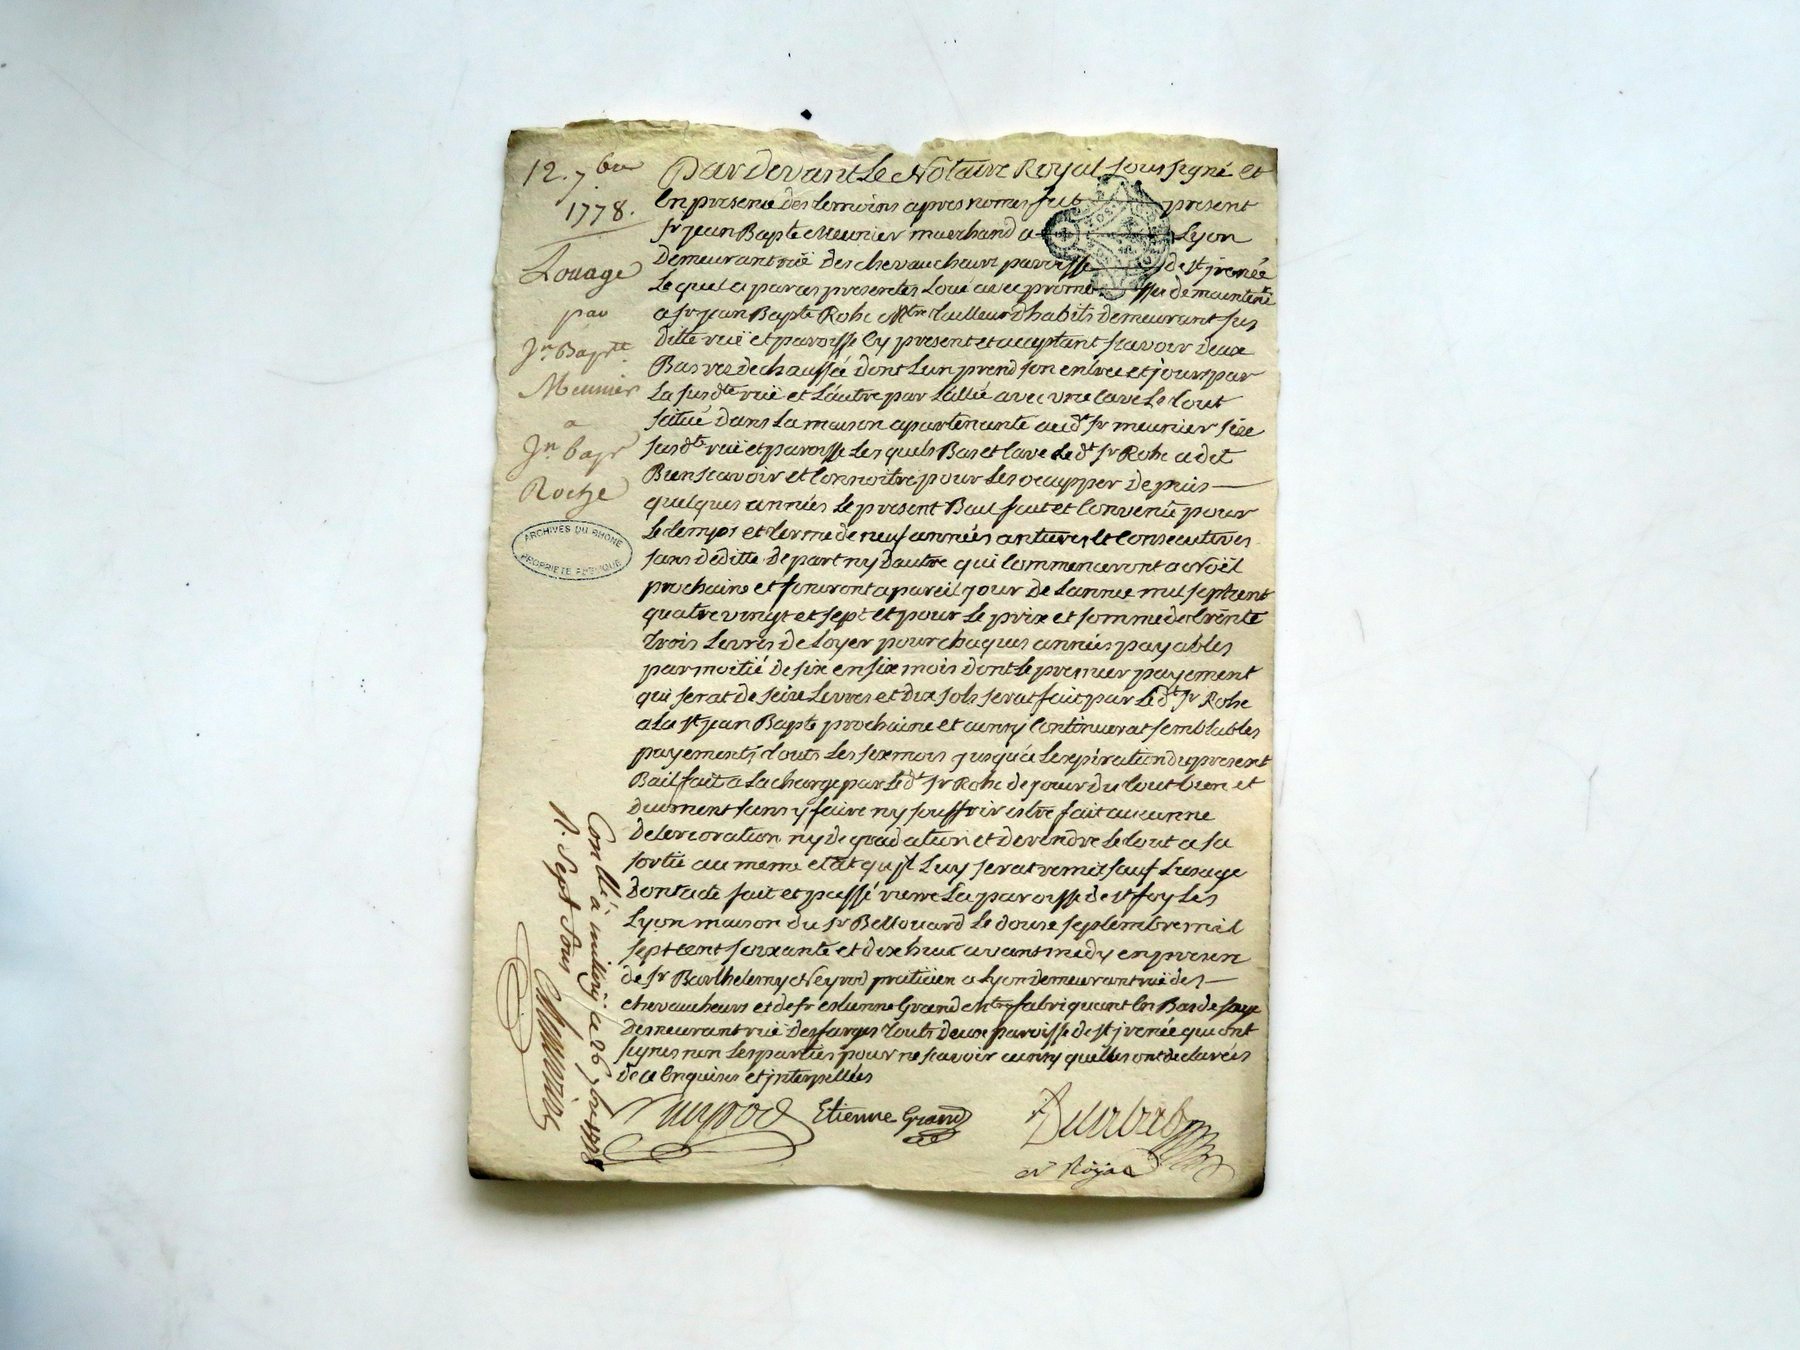 12. 7bre
1778.
Louage
par
Jn Baptte
Meunier
a
Jn bapt
Roche
ARCHIVES DU RHÔNE
PROPRIÉTÉ PUBLIQUE
Pardevant Le Notaire Royal soussigné et
En presence des temoins apres nomes fut present
sr jean Bapte Meunier marchand a Lyon
Demeurant rue des chevaucheurs paroisse de st jrenée
Lequel a par ces presentes Loué avec promesse de maintenir
a sr jean Bapte Rohe Mtre tailleur dhabits demeurant sus
ditte rue et paroisse Cy present et acceptant scavoir deux
Bas rez de chaussée dont Lun prend son entrée et jours par
La susdte rue et Lautre par Lallée avec une Cave Le tout
situé dans La maison apartenante audt sr meunier size
susdte rue et paroisse Lesquels Bas et Cave Ledt sr Rohe a dit
Bien scavoir et Connoitre pour Les occupper depuis
quelques années Le present Bail fait et Convenu pour
Le temps et terme de neuf années antieres et Consecutives
sans deditte de part ny dautre qui Commenceront a Noël
prochains et finiront a pareil jour de Lannée mil sept cent
quatre vingt et sept et pour Le prix et somme de trente
trois Livres de Loyer pour chaques années payables
par moitié de six en six mois dont Le premier payement
qui serat de seize Livres et dix sols serat fait par Ledt sr Rohe
a La st jean Bapte prochaine et ainsy Continuerat semblables
payements touts Les six mois jusqu'a Lexpiration du present
Bail fait a La charge par Ledt sr Rohe de jouir du tout bien et
duement sans y faire ny souffrir estre fait aucunne
deterioration ny degradation et de rendre Le tout a sa
sortie au meme etat quil Luy serat remis sauf Lusage
dont acte fait et passé riere La paroisse de st foy Les
Lyon maison du sr Bellouard Le douze septembre mil
sept cent soixante et dix huit avant midy en presence
de sr Barthelemy Neyrod praticien a Lyon demeurant rue des
chevaucheurs et de sr estienne Grand Mtre fabriquant En Bas de soye
demeurant rue des farges touts deux paroisse de st jrenée qui ont
signes non Les parties pour ne scavoir ainsy quelles ont declarées
de ce Enquises et jnterpellées
Neyrod Etienne Grand
Nre Royal
Conllé à a 26 7bre 1778
R. Sept sous